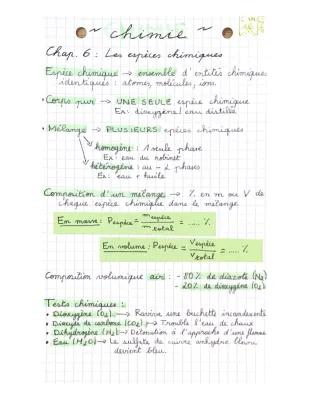 ~ chimie ~
Chap. 6 : Les espèces chimiques
Espèce chimique → ensemble d'entités chimiques
identiques : atomes, molécules, ions.
• Corps pur → UNE SEULE espèce chimique
Ex : dioxygène / eau distillée
• Mélange → PLUSIEURS espèces chimiques
homogène : 1 seule phase
Ex : eau du robinet
hétérogène : au - 2 phases
Ex : eau + huile
Composition d'un mélange → % en m ou V de
chaque espèce chimique dans le mélange
En masse : Pespèce = mespèce / mtotal = ..... %
En volume : Pespèce = Vespèce / Vtotal = ..... %
Composition volumique air : - 80% de diazote (N2)
- 20% de dioxygène (O2)
Tests chimiques :
• Dioxygène (O2) → Ravive une buchette incandescente
• Dioxyde de carbone (CO2) → Trouble l'eau de chaux
• Dihydrogène (H2) → Détonation à l'approche d'une flamme
• Eau (H2O) → Le sulfate de cuivre anhydre
devient bleu.